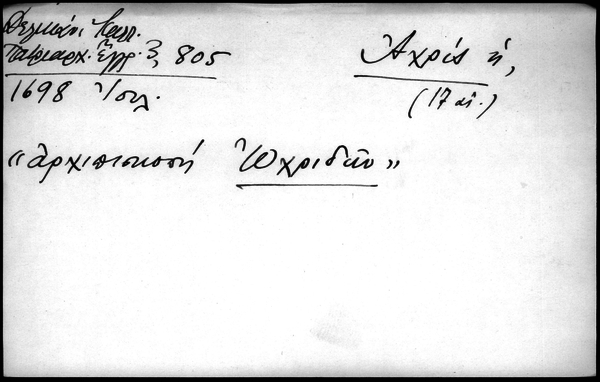 Δελικάνι Καλλ.
Πατριαρχ. Ἔγγρ. 3, 805
1698 Ἰουλ.
Ἀχρίς ἡ,
(17 αἰ.)
«ἀρχιεπισκοπή Ὠχριδῶν»